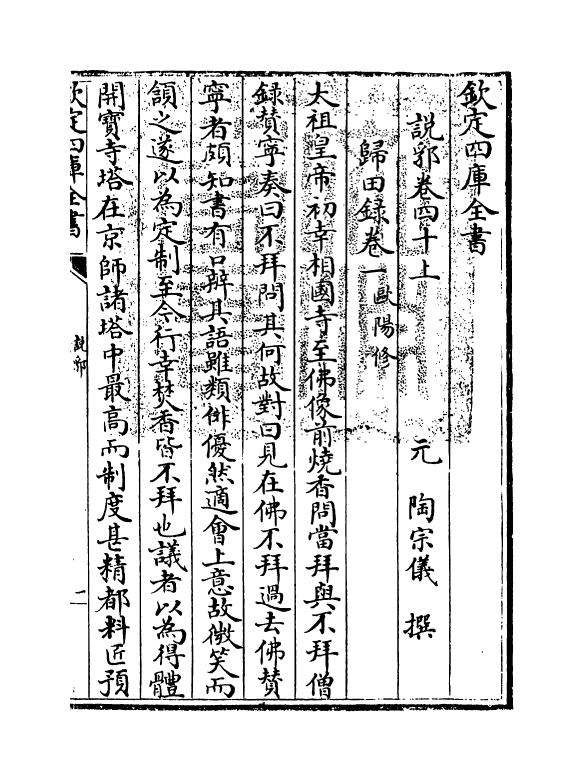 欽定四庫全書
說郛卷四十上
元 陶宗儀 撰
歸田録卷一 歐陽修
太祖皇帝初幸相國寺至佛像前燒香問當拜與不拜僧
録贊寧奏曰不拜問其何故對曰見在佛不拜過去佛贊
寧者頗知書有口辯其語雖類俳優然適會上意故微笑而
頷之遂以為定制至今行幸焚香皆不拜也議者以為得體
開寶寺塔在京師諸塔中最高而制度甚精都料匠預
欽定四庫全書
說郛
二